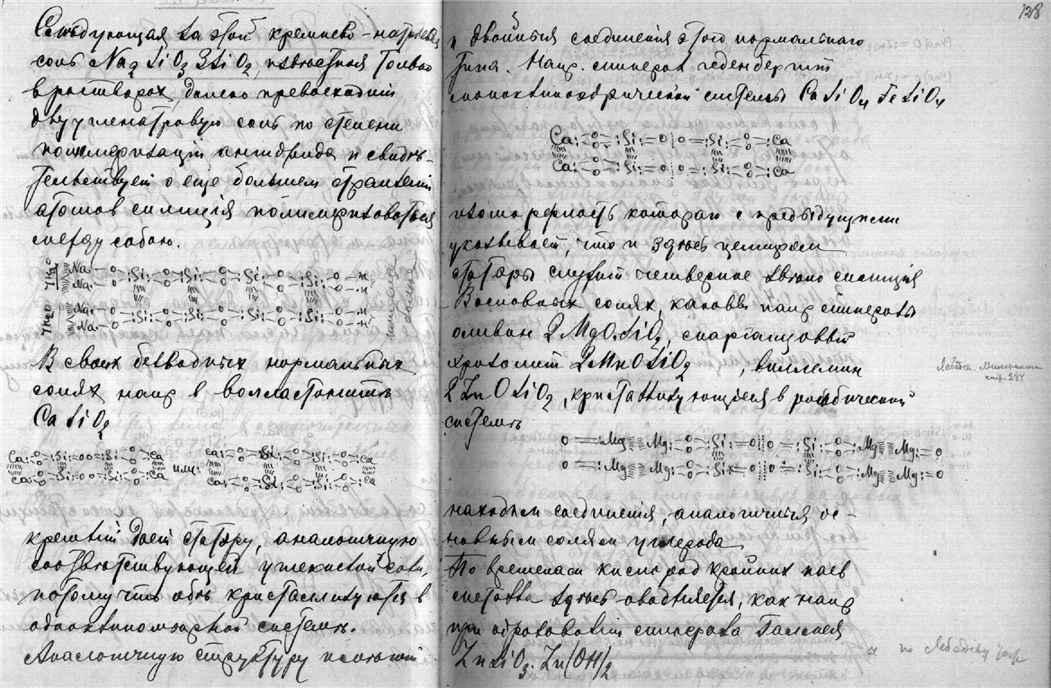 Следующая за этой кремнево-натровая
соль Na2SiO3 3SiO2, известная только
в растворах, далеко превосходит
двуугленатровую соль по степени
полимеризации ангидрида и свидѣ-
тельствует о еще большем стремлении
атомов силиция полимеризоваться
между собою.
7H2O
7H2O
В своих безводных нормальных
солях, напр. в волластонитѣ
CaSiO2
или
кремний дает статэру, аналогичную
соответствующей углекислой соли,
потому что обѣ кристаллизуются в
одноклиномѣрной системѣ.
Аналогичную структуру имеют
128
и двойныя соединения этого нормальнаго
типа. Напр. минерал геденбергит
моноклиноэдрической системы CaSiO4 FeSiO4
изоморфность котораго с предыдущим
указывает, что и здѣсь
статэры служит четверное звено силиция
В основных солях, каковы напр. минералы
оливин 2MgO.SiO2, марганцовый
хризолит 2MnOSiO2, виллемин
2ZnOSiO2, кристаллизующиеся в ромбической
системѣ
находим соединения, аналогичныя ос-
новным солям углерода.
По временам кислород крайних паев
металла здѣсь оводняется, как напр.
при образовании минерала Галмея
ZnSiO3.Zn(OH)2
по Лебедеву